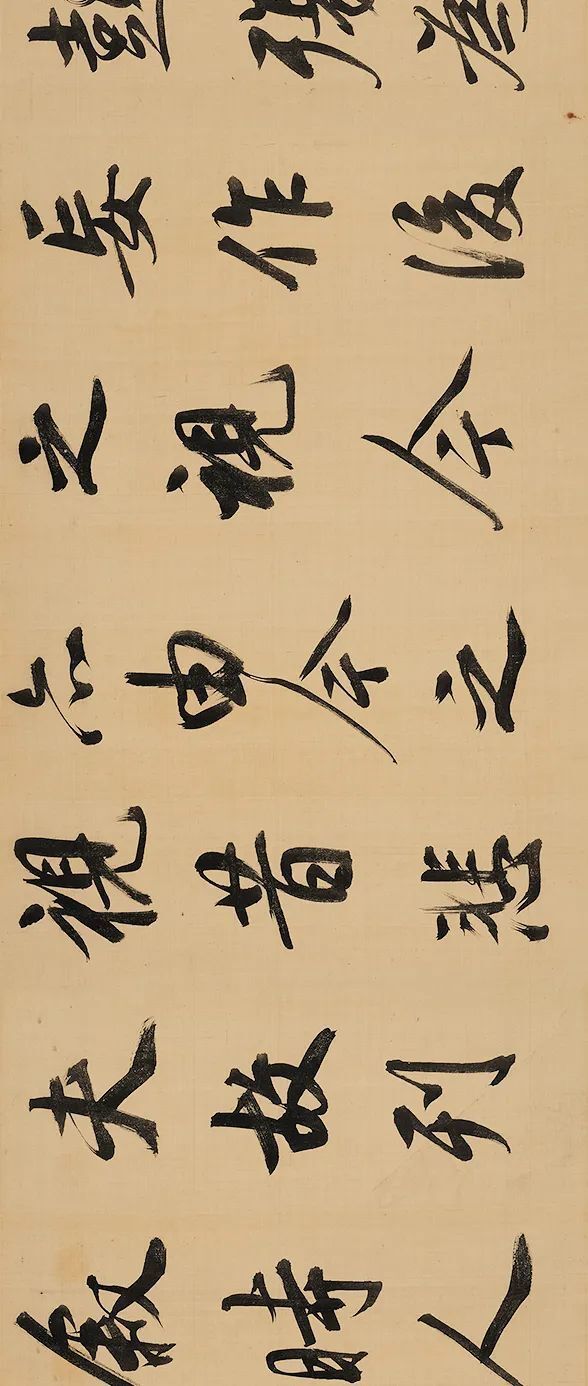 彭殤為
妄作後
之視今
亦由今之
視昔悲
夫故列
敘時人